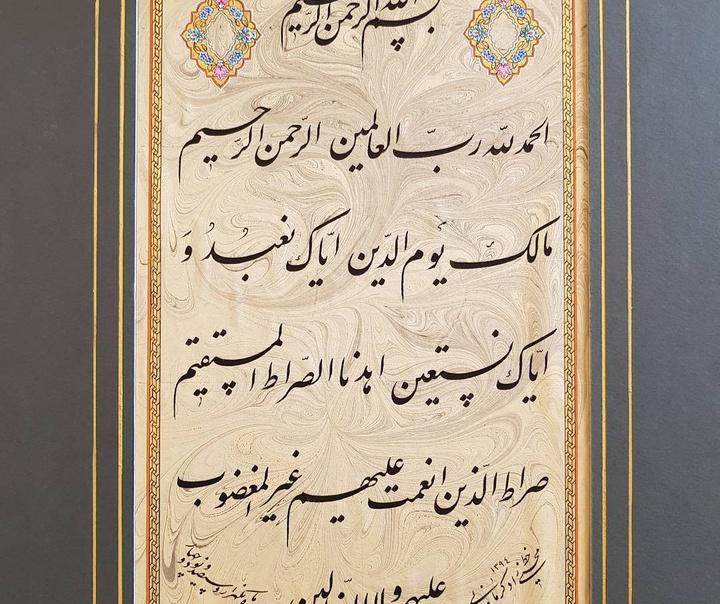 بسم الله الرحمن الرحیم
الحمد لله ربّ العالمین الرّحمن الرّحیم
مالک یوم الدّین ایّاک نعبدُ وَ
ایّاک نستعین اهدنا الصّراط المستقیم
صراط الّذین انعمت علیهم غیر المغضوب
علیهم و لا الضّالین